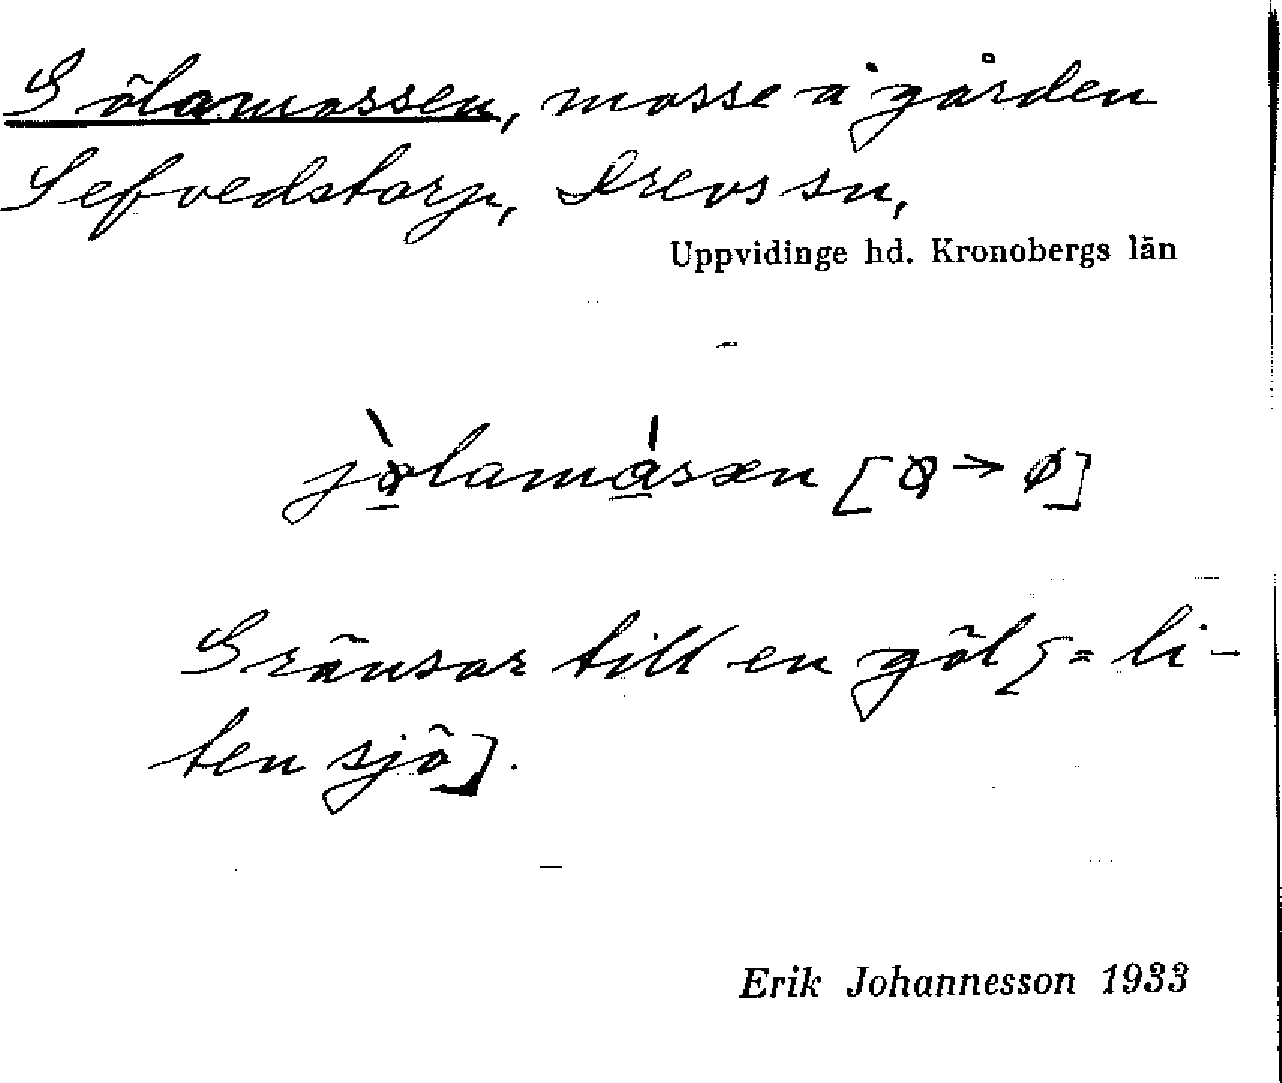 Gölamossen, mosse å gården
Sefvedstorp, Drevs sn,
Uppvidinge hd. Kronobergs län
jø̀lamåsæn [ → ø]
Gränsar till en göl [= li-
ten sjö].
Erik Johannesson 1933